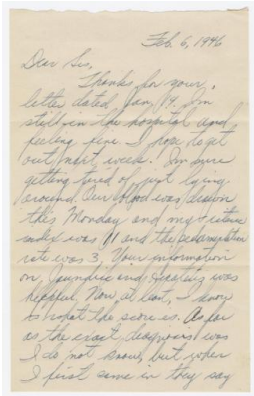 Feb. 6, 1946
Dear Sis,
Thanks for your
letter dated Jan 14. Im
still in the hospital and
feeling fine. I hope to get
out next week. I'm sure
getting tired of just lying
around. Our blood was drawn
this Monday and my icterus
index was 11 and the sedimentation
rate was 3. Your information
on Jaundice and Hepatitis was
helpful. Now, at last, I know
what the score is. As far
as the exact diagnosis was
I do not know, but when
I first came in they say